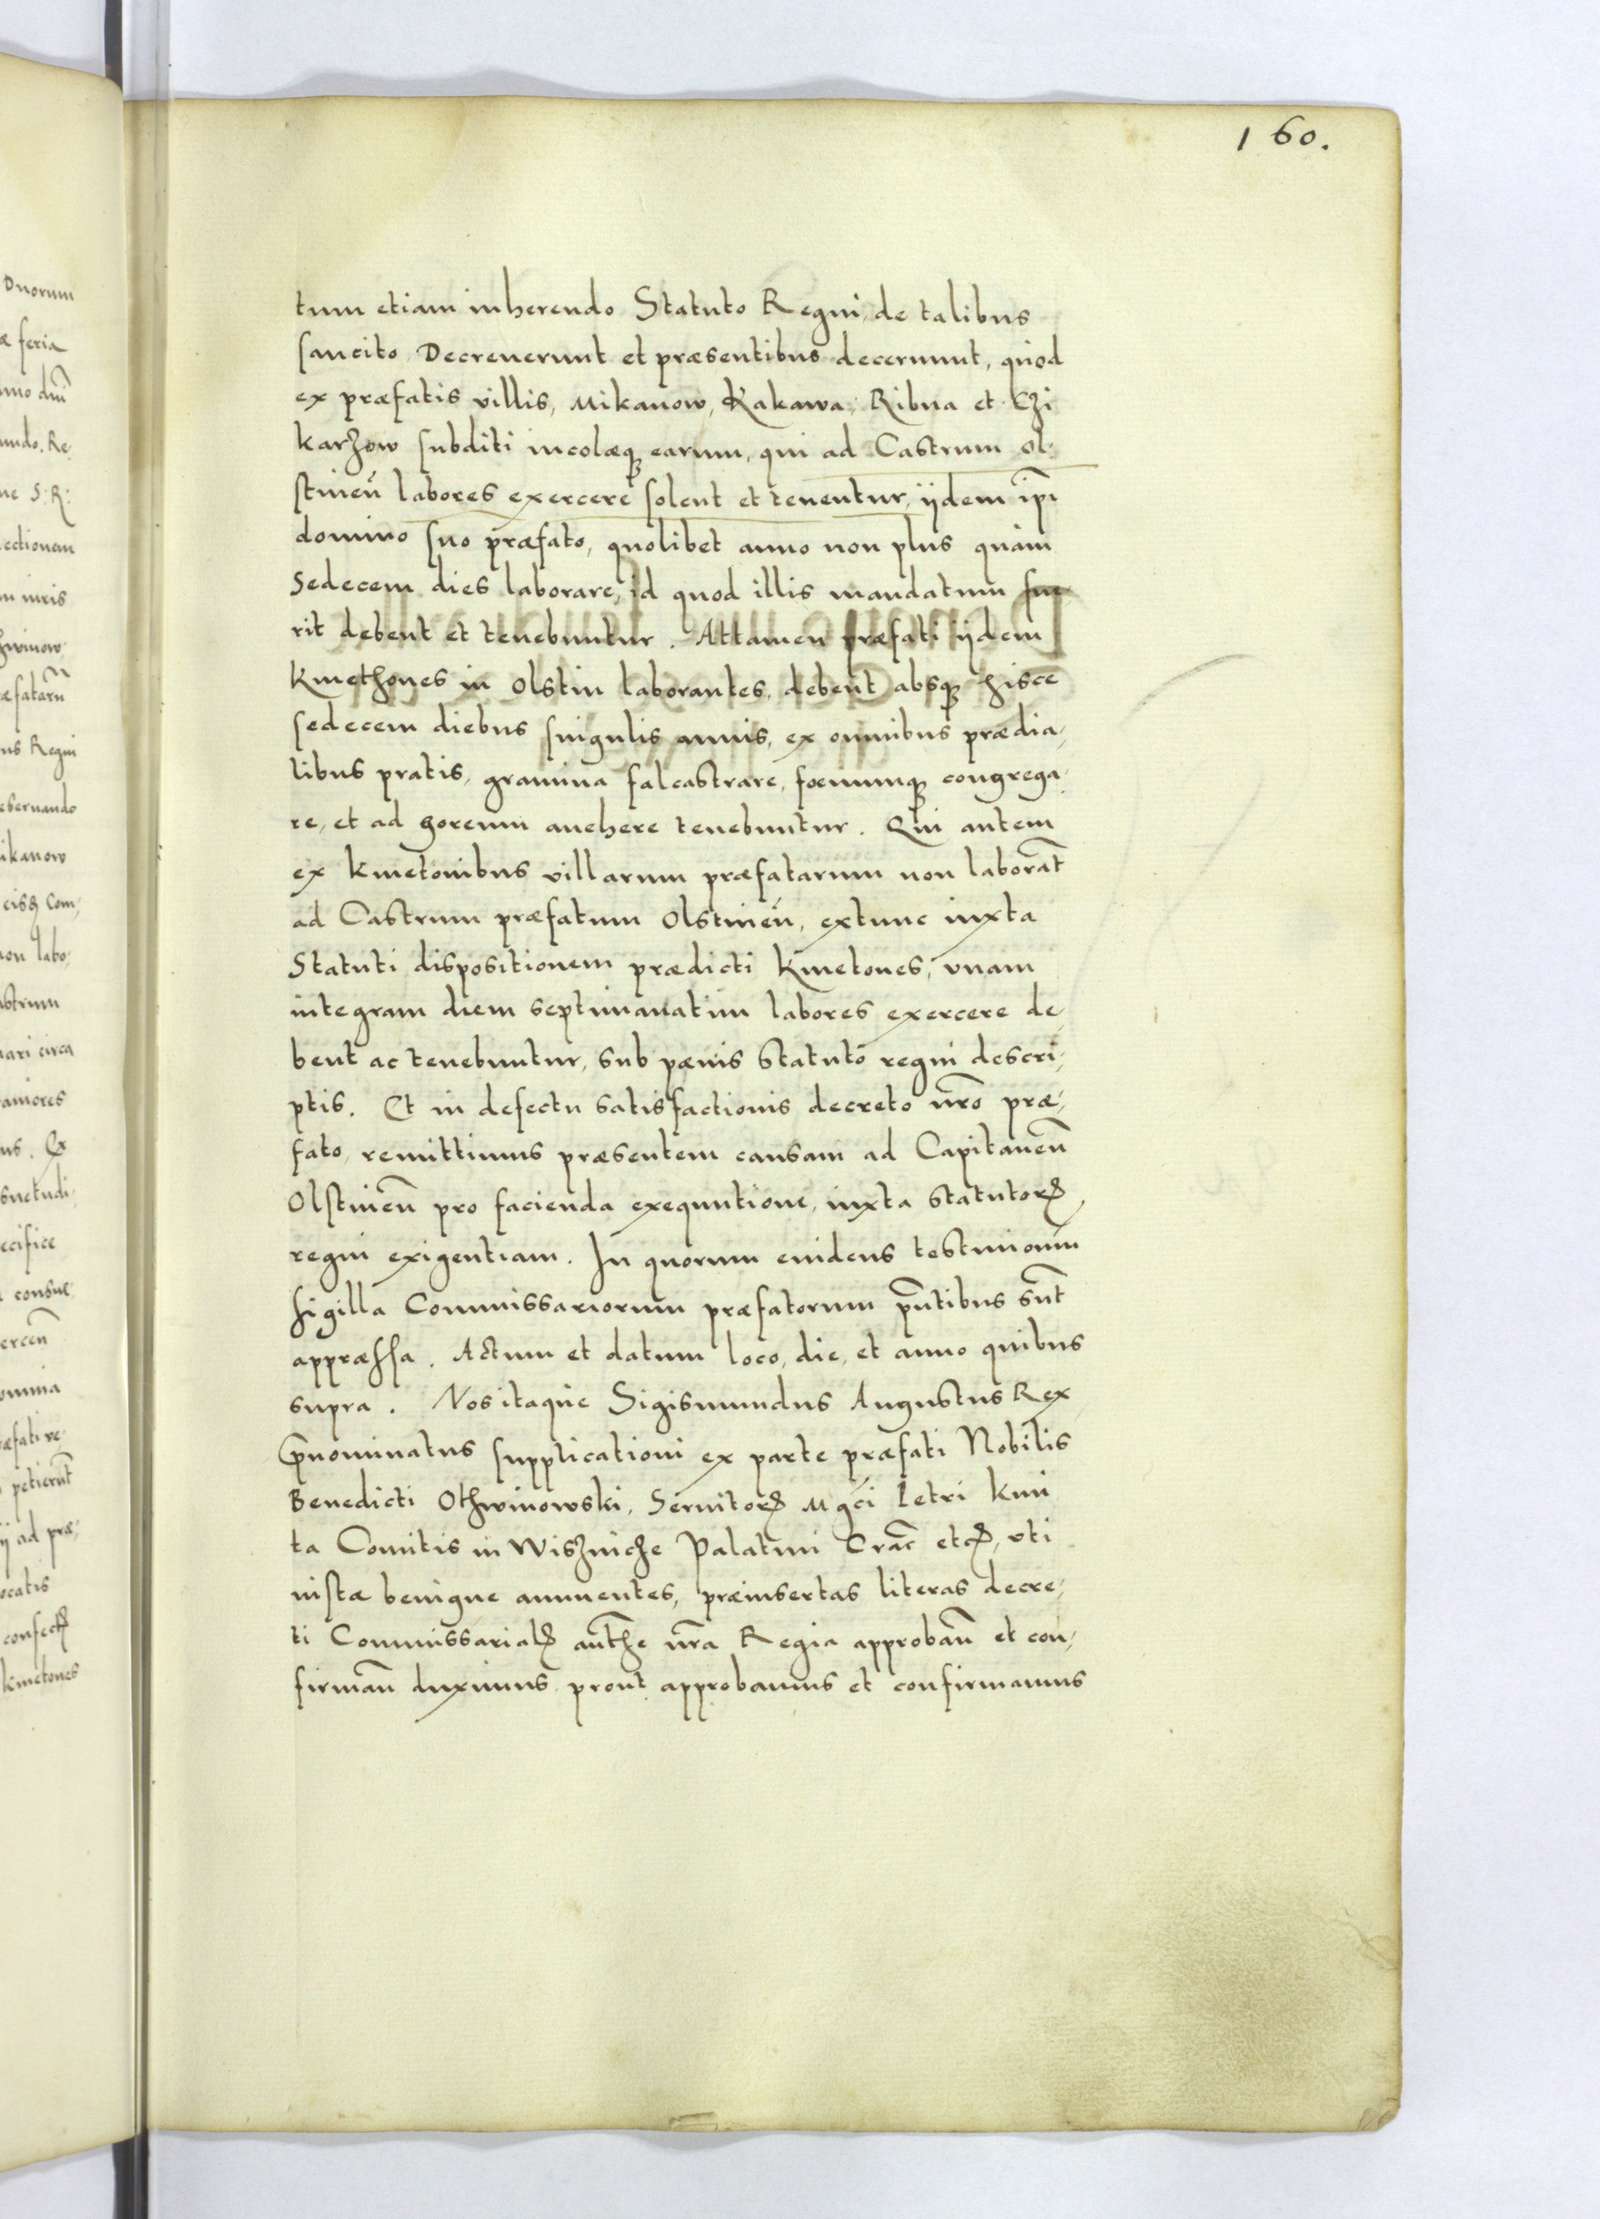 160.
tum etiam inherendo Statuto Regni, de talibus
sancito Decreuerunt et præsentibus decernunt, quod
ex præfatis villis, Mikanow, Kakawa, Ribna et Czi
karzow subditi incolæq earum, qui ad Castrum Ol
stinen̄ labores exercere solent et tenentur, ijdem ip̄i
domino suo præfato, quolibet anno non plus quàm
Sedecem dies laborare, id quod illis mandatum fue
rit debent et tenebuntur. Attamen præfati ijdem
Kmethones in Olstin laborantes, debent absq hisce
sedecem diebus singulis annis, ex omnibus prædia,
libus pratis, gramina falcastrare, foenumq congrega,
re, et ad horeum auehere tenebuntur. Qui autem
ex kmetonibus villarum præfatarum non laborāt
ad Castrum præfatum Olstinen̄, extunc iuxta
Statuti dispositionem prædicti Kmetones, vnam
integram diem septimanatim labores exercere de,
bent ac tenebuntur, sub pœnis statuto regni descri,
ptis. Et in defectu satisfactionis decreto nr̄o præ,
fato, remittimus præsentem causam ad Capitaneū
Olstinen̄ pro facienda exequutione, iuxta statutorꝭ
regni exigentiam. In quorum euidens testimoniū
sigilla Commissariorum præfatorum pn̄tibus sūnt
appræssa. Actum et datum loco, die, et anno quibus
supra. Nos itaque Sigismundus Augustus Rex
p̄nominatus supplicationi ex parte præfati Nobilis
Benedicti Othwinowski, Seruitorꝭ Mgci Petri Kmi
ta Comitis in Wisznicze Palatini Crac̄ etcꝭ, vti
iustæ benigne annuentes, præinsertas literas decre,
ti Commissarialꝭ aut̄he nr̄a Regia approban̄ et con,
firman̄ duximus prout approbamus et confirmamus